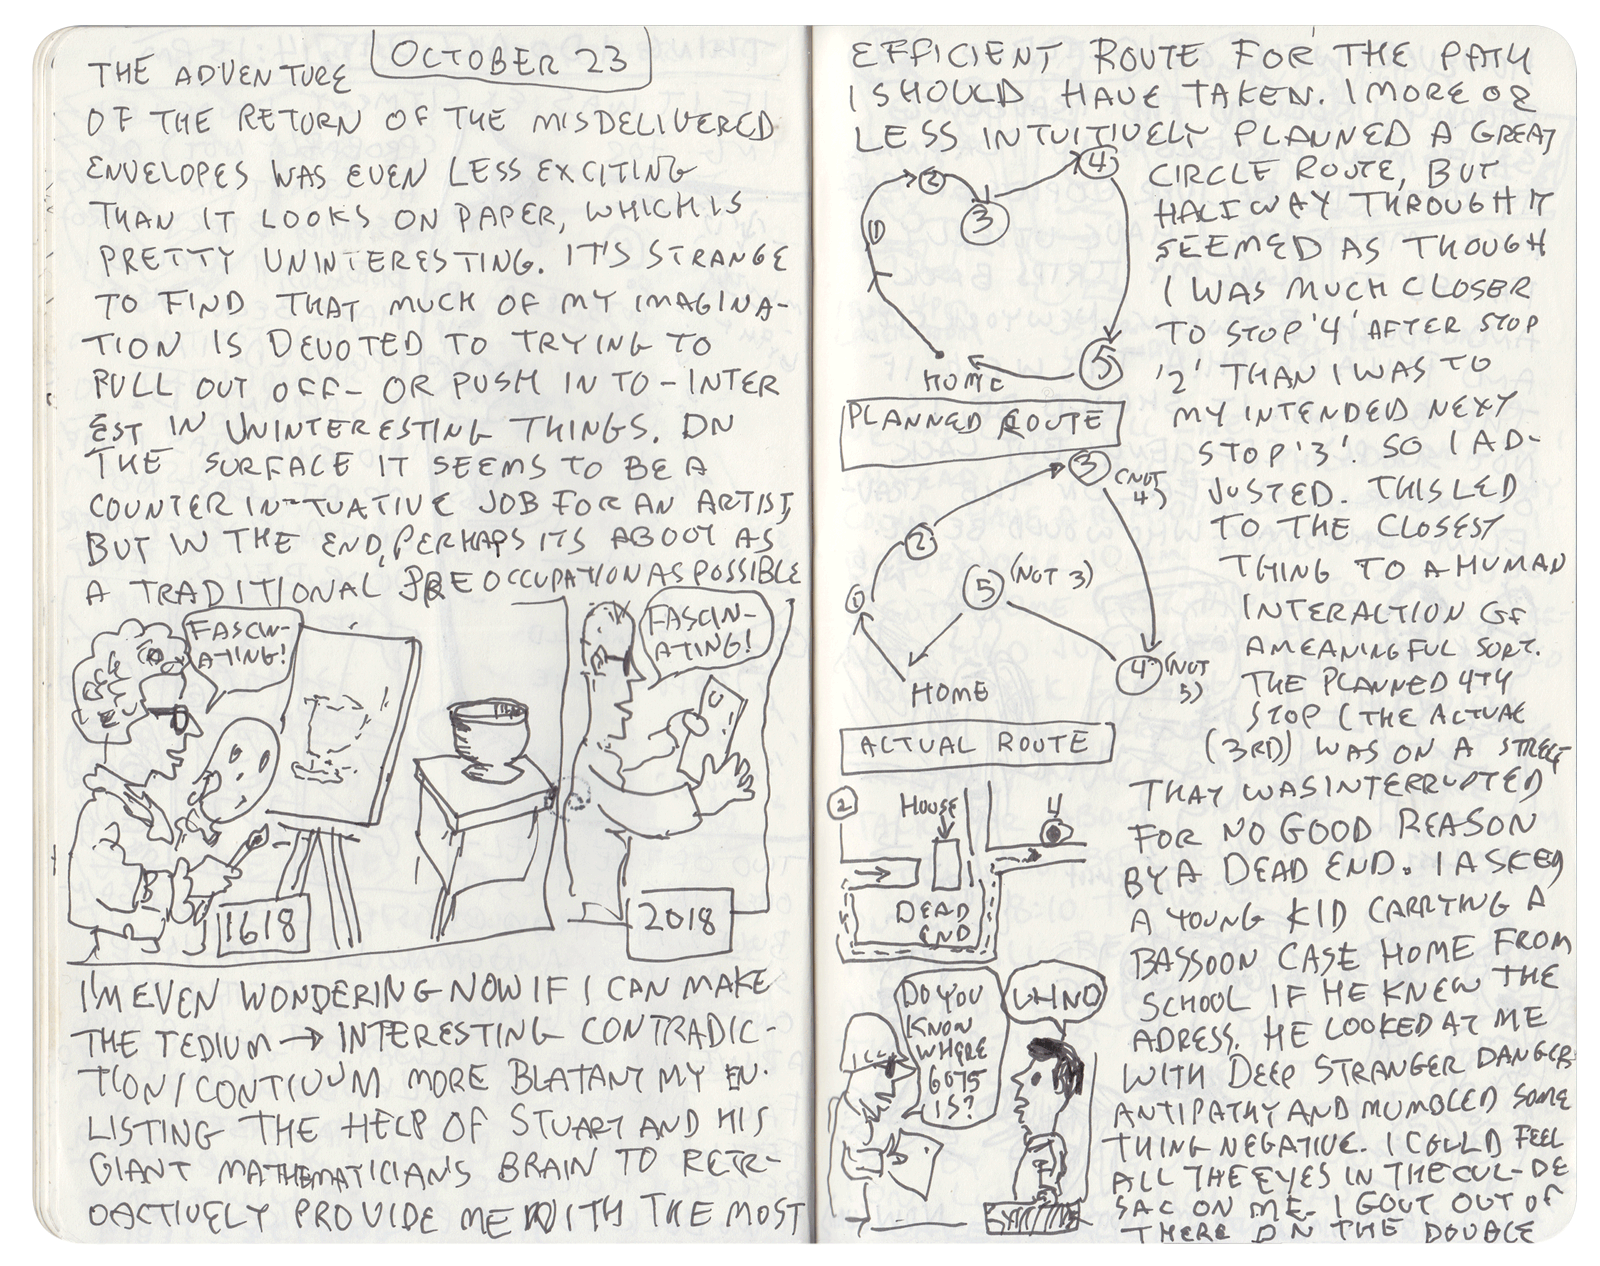 OCTOBER 23
THE ADVENTURE
OF THE RETURN OF THE MISDELIVERED
ENVELOPES WAS EVEN LESS EXCITING
THAN IT LOOKS ON PAPER, WHICH IS
PRETTY UNINTERESTING. IT'S STRANGE
TO FIND THAT MUCH OF MY IMAGINA-
TION IS DEVOTED TO TRYING TO
PULL OUT OFF - OR PUSH IN TO - INTER
EST IN UNINTERESTING THINGS. ON
THE SURFACE IT SEEMS TO BE A
COUNTER IN-TUATIVE JOB FOR AN ARTIST,
BUT IN THE END, PERHAPS ITS ABOUT AS
A TRADITIONAL PREOCCUPATION AS POSSIBLE
FASCIN-
ATING!
FASCIN-
ATING!
1618
2018
I'M EVEN WONDERING NOW IF I CAN MAKE
THE TEDIUM → INTERESTING CONTRADIC-
TION/CONTIUUM MORE BLATANT MY EN-
LISTING THE HELP OF STUART AND HIS
GIANT MATHEMATICIAN'S BRAIN TO RETR-
OACTIVELY PROVIDE ME WITH THE MOST
EFFICIENT ROUTE FOR THE PATH
I SHOULD HAVE TAKEN. I MORE OR
LESS INTUITIVELY PLANNED A GREAT
CIRCLE ROUTE, BUT
HALFWAY THROUGH IT
SEEMED AS THOUGH
I WAS MUCH CLOSER
TO STOP '4' AFTER STOP
'2' THAN I WAS TO
MY INTENDED NEXT
STOP '3'. SO I AD-
JUSTED. THIS LED
TO THE CLOSEST
THING TO A HUMAN
INTERACTION OF
A MEANINGFUL SORT.
THE PLANNED 4TH
STOP (THE ACTUAL
(3RD) WAS ON A STREET
THAT WAS INTERRUPTED
FOR NO GOOD REASON
BY A DEAD END. I ASKED
A YOUNG KID CARRYING A
BASSOON CASE HOME FROM
SCHOOL IF HE KNEW THE
ADRESS. HE LOOKED AT ME
WITH DEEP STRANGER DANGER
ANTIPATHY AND MUMBLED SOME
THING NEGATIVE. I COULD FEEL
ALL THE EYES IN THE CUL-DE
SAC ON ME. I GOUT OUT OF
THERE ON THE DOUBLE
1
2
3
4
5
HOME
PLANNED ROUTE
3
(NOT
4)
2
5
(NOT 3)
1
4
(NOT
5)
HOME
ACTUAL ROUTE
2
HOUSE
4
DEAD
END
DO YOU
KNOW
WHERE
6075
IS?
UHNO